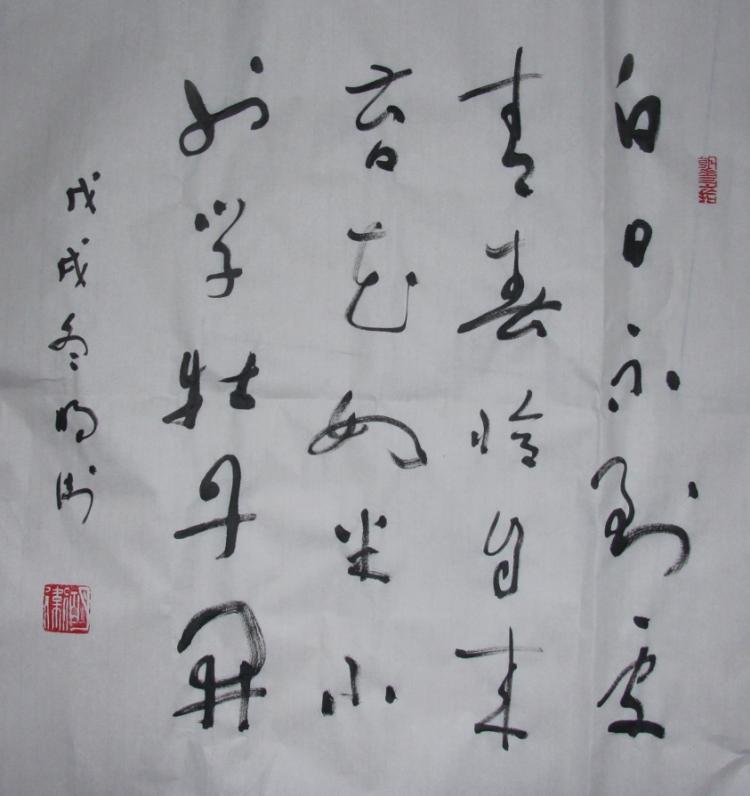 白日不到处
青春恰自来
苔花如米小
也学牡丹开
戊戌冬明